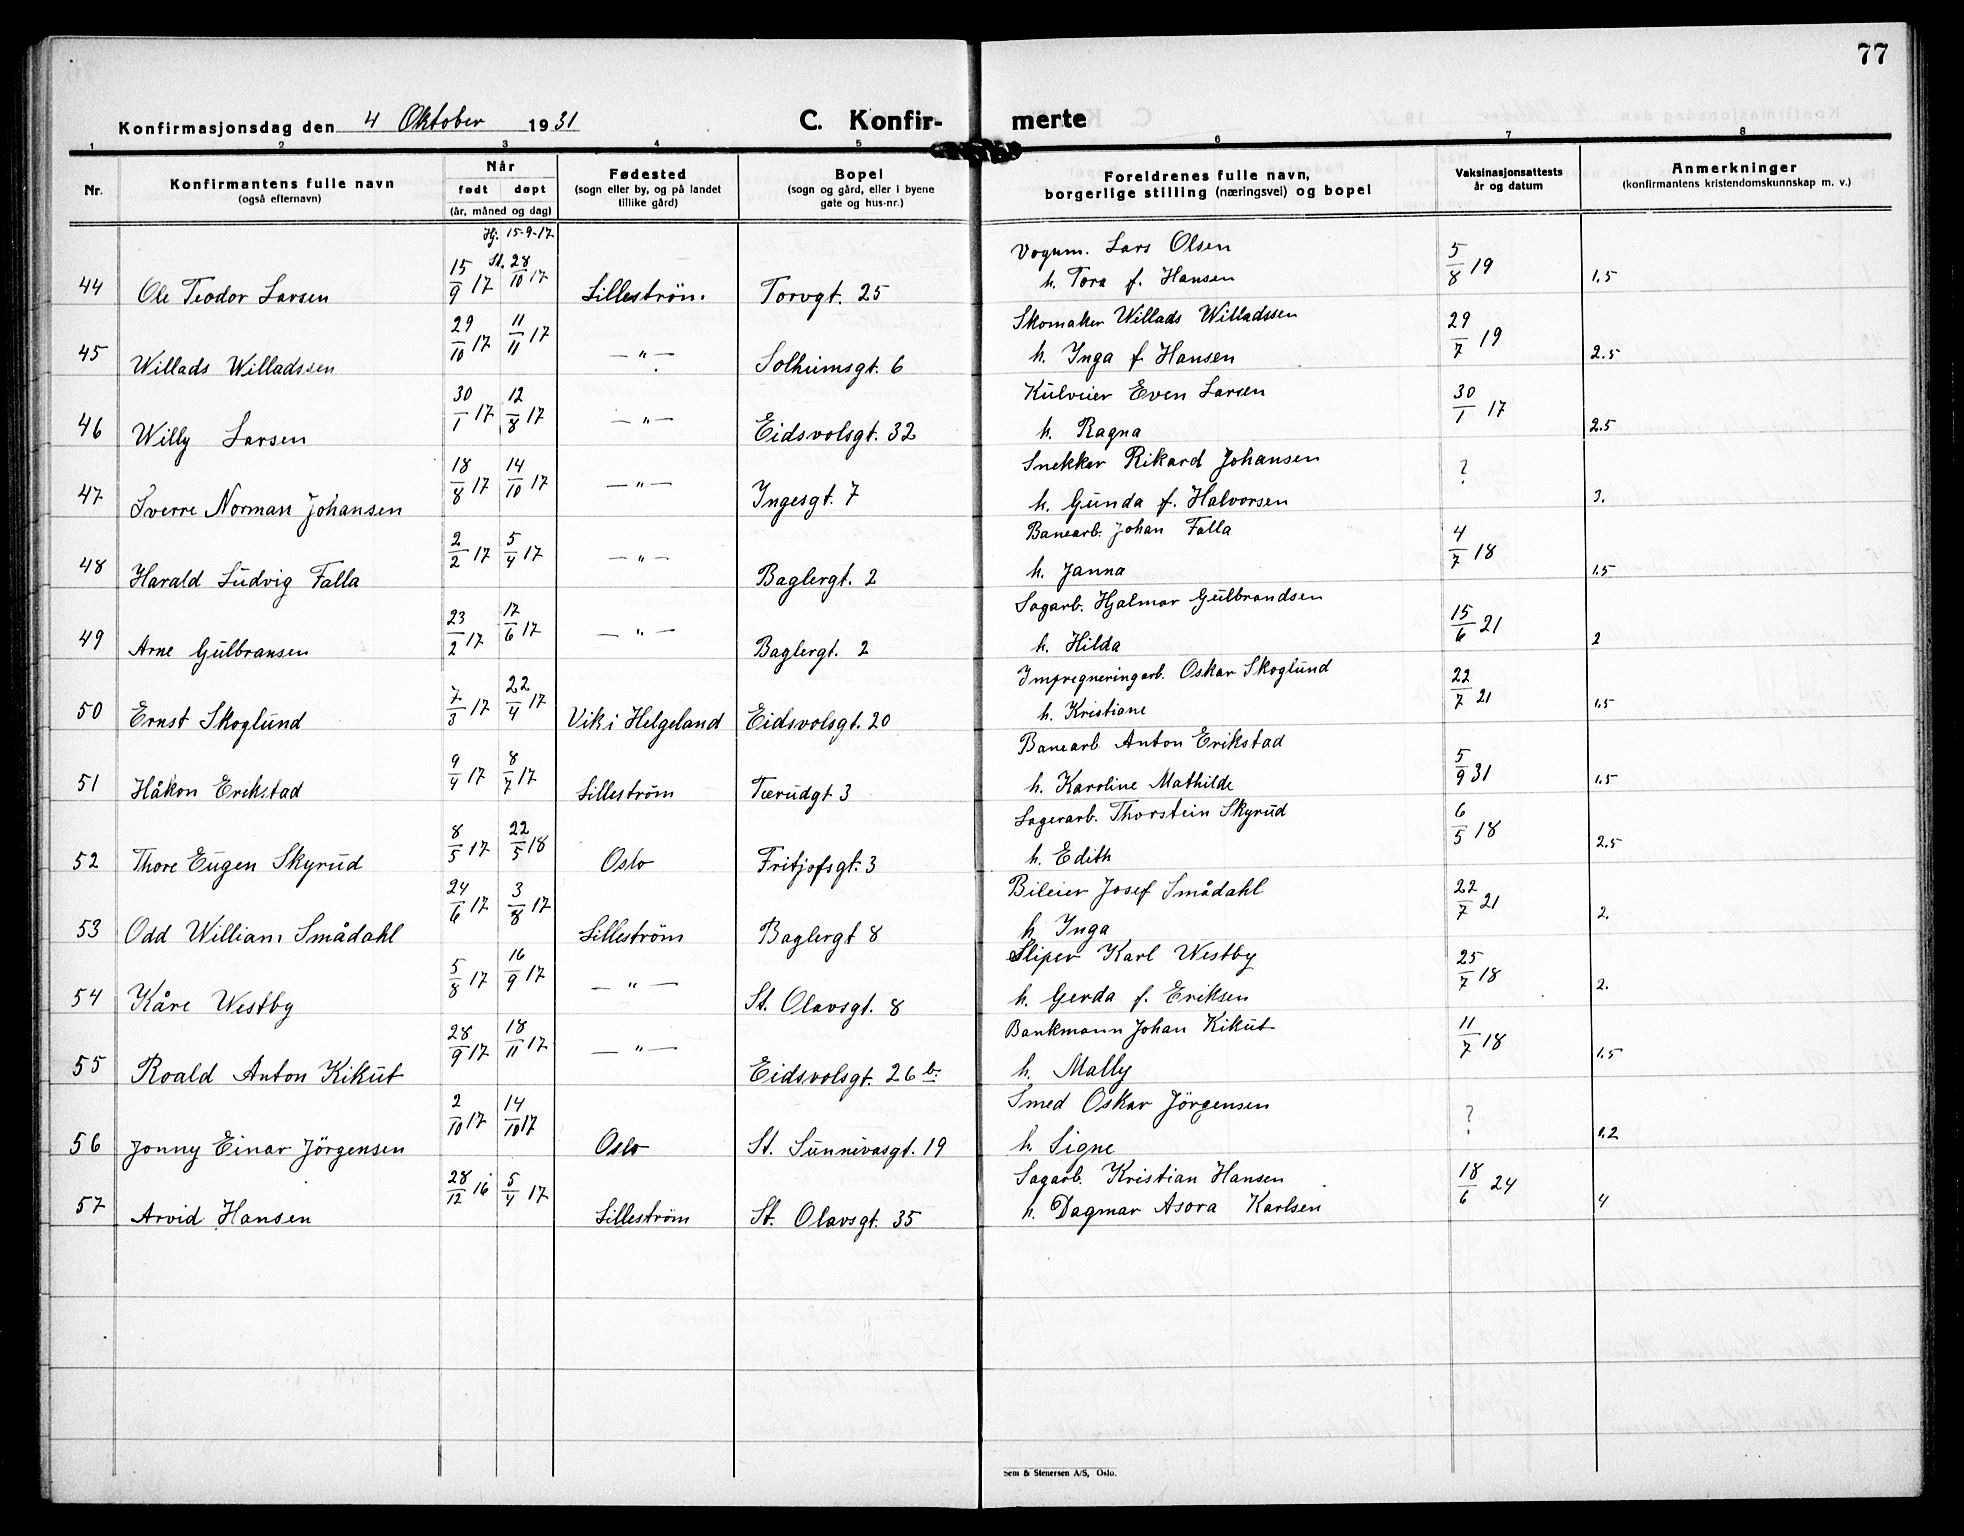 77
Konfirmasjonsdag den 4 Oktober 1931 C. Konfir- merte
1 2 3 4 5 6 7 8
Nr. Konfirmantens fulle navn (også efternavn) Når født døpt (år, måned og dag) Fødested (sogn eller by, og på landet tillike gård) Bopel (sogn og gård, eller i byene gate og hus-nr.) Foreldrenes fulle navn, borgerlige stilling (næringsvei) og bopel Vaksinasjonsattests år og datum Anmerkninger (konfirmantens kristendomskunnskap m. v.)
Hj. 15-9-17
44 Ole Teodor Larsen 15/9 17 St. 28/10 17 Lilleström. Torvgt. 25 Vognm. Lars Olsen 5/8 19 1.5
h. Tora f. Hansen
45 Willads Willadssen 29/10 17 11/11 17 — " — Solheimsgt. 6 Skomaker Willads Willadssen 29/7 19 2.5
h. Inga f. Hansen
46 Willy Larsen 30/1 17 12/8 17 — " — Eidsvolsgt. 32 Kulveier Even Larsen 30/1 17 2.5
h. Ragna
47 Sverre Norman Johansen 18/8 17 14/10 17 — " — Ingesgt. 7 Snekker Rikard Johansen ? 3.
h. Gunda f. Halvorsen
48 Harald Ludvig Falla 2/2 17 5/4 17 — " — Baglergt. 2 Banearb. Johan Falla 4/7 18 1.5
h. Janna
49 Arne Gulbransen 23/2 17 17/6 17 — " — Baglergt. 2 Sagarb. Hjalmar Gulbrandsen 15/6 21 2
h. Hilda
50 Ernst Skoglund 7/3 17 22/4 17 Vik i Helgeland Eidsvolsgt. 20 Impregneringarb. Oskar Skoglund 22/7 21 1.5
h. Kristiane
51 Håkon Erikstad 9/4 17 8/7 17 Lilleström Tærudgt 3 Banearb. Anton Erikstad 5/9 31 1.5
h. Karoline Mathilde
52 Thore Eugen Skyrud 8/5 17 22/5 18 Oslo Fritjofsgt. 3 Lagerarb. Thorstein Skyrud 6/5 18 2.5
h. Edith
53 Odd William Smådahl 24/6 17 3/8 17 Lilleström Baglergt 8 Bileier Josef Smådahl 22/7 21 2.
h. Inga
54 Kåre Westby 5/8 17 16/9 17 — " — St. Olavsgt. 8 Sliper Karl Westby 25/7 18 2.
h. Gerda f. Eriksen
55 Roald Anton Kikut 28/9 17 18/11 17 — " — Eidsvolsgt. 26 b. Bankmann Johan Kikut 11/7 18 1.5
h. Mally
56 Jonny Einar Jörgensen 2/10 17 14/10 17 Oslo St. Sunnivasgt. 19 Smed Oskar Jörgensen ? 1.2
h. Signe
57 Arvid Hansen 28/12 16 5/4 17 Lilleström St. Olavsgt. 35 Sagarb. Kristian Hansen 18/6 24 4
h. Dagmar Asora Karlsen
Sem & Stenersen A/S, Oslo.